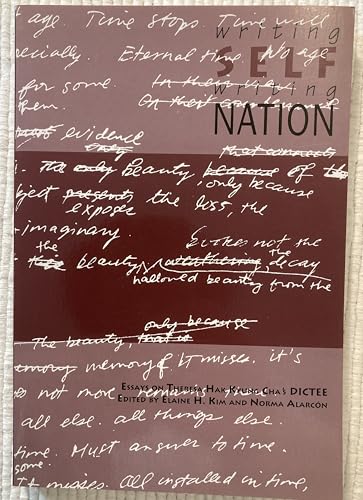 age. Time stops. Time will
writing
ecially. Eternal time. No age
SELF
for some. In their
writing
them.
NATION
evidence
only
that connects
the only Beauty, because of
only because
bject presents the loss, the
exposes
imaginary.
Evokes not the
the
beauty, the decay
hallowed beauty from the
only because
The beauty, that is
among memory of it misses. it's
ESSAYS ON THERESA HAK KYUNG CHA'S DICTEE
oes not more
EDITED BY ELAINE H. KIM AND NORMA ALARCÓN
all else. all things else.
time. Must answer to time.
some.
It misses. All installed in time,